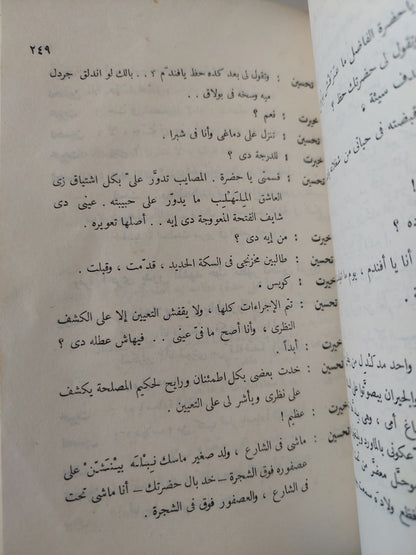 ٢٤٩
تحسين : وتقول لى بعد كده حظ يافندم ؟ .. بالك لو اندلق جردل
ميه وسخه فى بولاق .
خيرت : نعم ؟
تحسين : تنزل على دماغى وأنا فى شبرا .
خيرت : للدرجة دى ؟
تحسين : قسمتى يا حضرة . المصايب تدوَّر علىّ بكل اشتياق زى
العاشق الملهلب ما يدوَّر على حبيبته . عينى دى
شايف الفتحة المعووجة دى إيه .. أصلها تعويره .
خيرت : من إيه دى ؟
تحسين : طالبين مخزنجى فى السكة الحديد ، قدّمت ، وقبلت .
خيرت : كويس .
تحسين : تتم الإجراءات كلها ، ولا يقفش التعيين إلا على الكشف
النظرى ، وأنا أصح ما فىّ عينى .. فيهاش عطله دى ؟
خيرت : أبداً .
تحسين : خدت بعضى بكل اطمئنان ورايح لحكيم المصلحة يكشف
على نظرى ويأشر لى على التعيين .
خيرت : عظيم !
تحسين : ماشى فى الشارع ، ولد صغير ماسك نبله بينشن على
عصفوره فوق الشجرة – خد بال حضرتك – أنا ماشى تحت
فى الشارع ، والعصفور فوق فى الشجرة .
يا حضرة الفاضل ما
وتقول لى حضرتك حظ ؟
سيئة ،
فى حياتى من
!
ده ؟
أنا يا أفندم ، يوم
واحد مد
والجيران
أمى ، وهى
ولادة